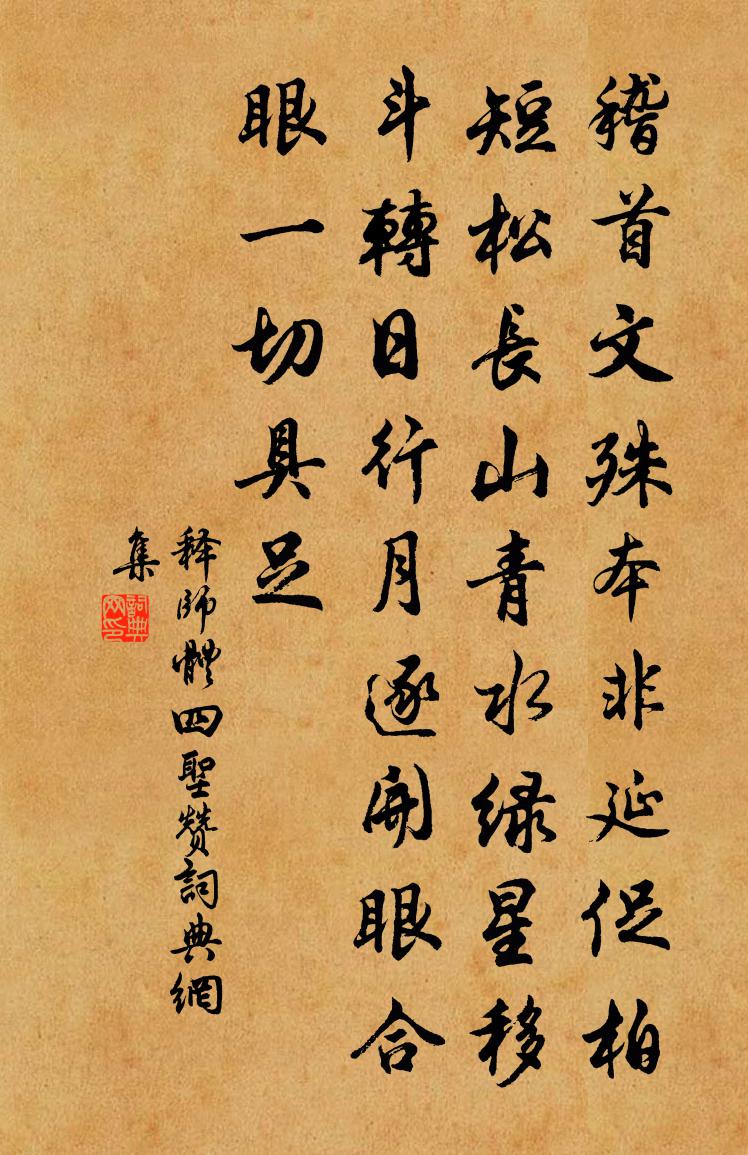 稽首文殊本非延促柏
短松長山青水绿星移
斗轉日行月逐開眼合
眼一切具足
释師體四聖赞詞典網
集
詞典
网印